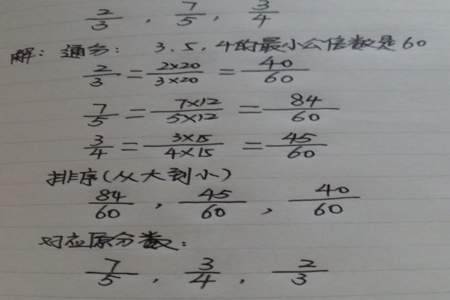 2/3 , 7/5 , 3/4
解: 通分: 3. 5. 4的最小公倍数是60
2/3 = 2×20/3×20 = 40/60
7/5 = 7×12/5×12 = 84/60
3/4 = 3×15/4×15 = 45/60
排序(从大到小)
84/60 , 45/60 , 40/60
对应原分数:
7/5 , 3/4 , 2/3